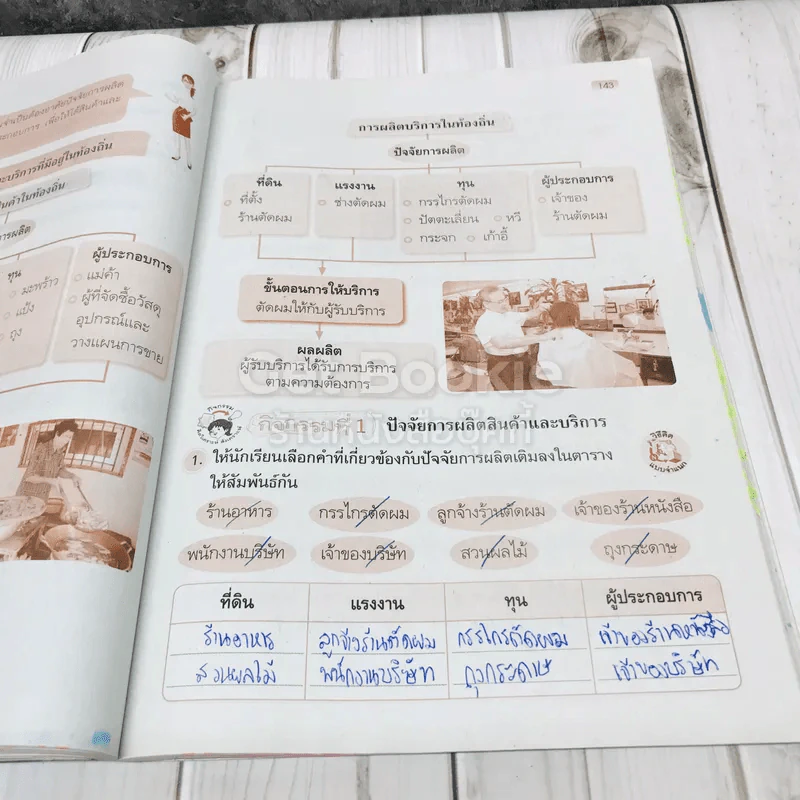 จำเป็นต้องอาศัยปัจจัยการผลิต
เพื่อให้ได้สินค้าและ
ะบริการที่มีอยู่ในท้องถิ่น
นค้าในท้องถิ่น
ารผลิต
ทุน
มะพร้าว
แป้ง
ถุง
ผู้ประกอบการ
แม่ค้า
ผู้ที่จัดซื้อวัสดุ
อุปกรณ์และ
วางแผนการขาย
143
การผลิตบริการในท้องถิ่น
ปัจจัยการผลิต
ที่ดิน
ที่ตั้ง
ร้านตัดผม
แรงงาน
ช่างตัดผม
ทุน
กรรไกรตัดผม
ปัตตะเลี่ยน หวี
กระจก เก้าอี้
ผู้ประกอบการ
เจ้าของ
ร้านตัดผม
ขั้นตอนการให้บริการ
ตัดผมให้กับผู้รับบริการ
ผลผลิต
ผู้รับบริการได้รับการบริการ
ตามความต้องการ
Get Bookie
ร้านหนังสือบุ๊คกี้
กิจกรรม
กิจกรรมที่ 1 ปัจจัยการผลิตสินค้าและบริการ
วิธีคิด
แบบจำแนก
1. ให้นักเรียนเลือกคำที่เกี่ยวข้องกับปัจจัยการผลิตเติมลงในตาราง
ให้สัมพันธ์กัน
ร้านอาหาร กรรไกรตัดผม ลูกจ้างร้านตัดผม เจ้าของร้านหนังสือ
พนักงานบริษัท เจ้าของบริษัท สวนผลไม้ ถุงกระดาษ
ที่ดิน แรงงาน ทุน ผู้ประกอบการ
ร้านอาหาร ลูกจ้างร้านตัดผม กรรไกรตัดผม เจ้าของร้านหนังสือ
สวนผลไม้ พนักงานบริษัท ถุงกระดาษ เจ้าของบริษัท